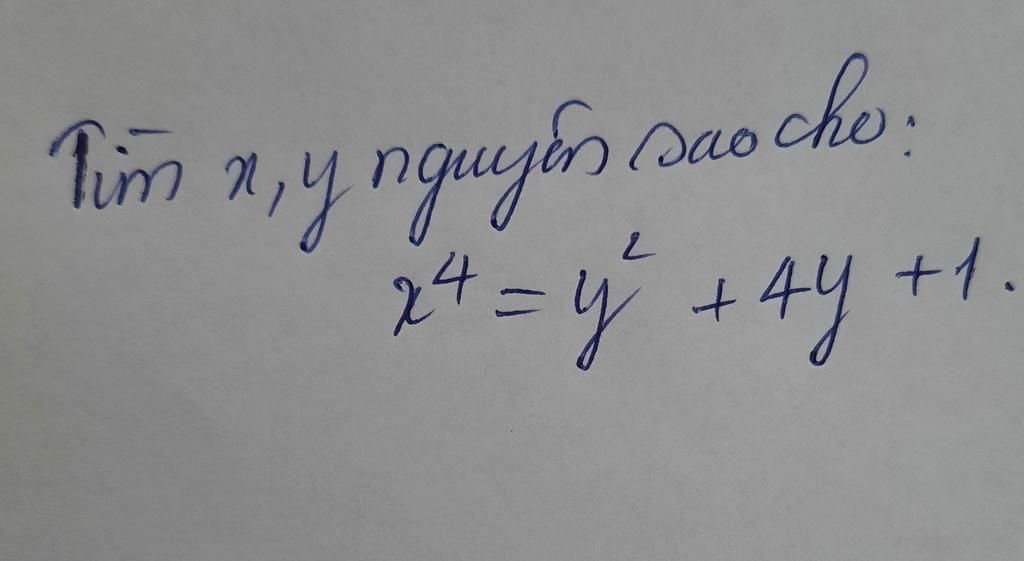 Tìm x, y nguyên sao cho:
x⁴ = y² + 4y + 1.